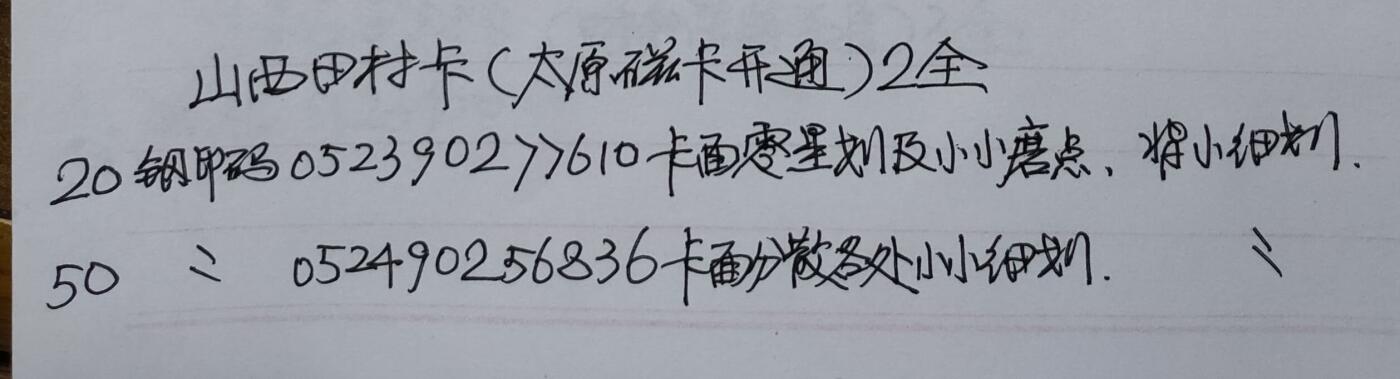 山西田村卡(太原磁卡开通)2全
20钢印码052390277610卡面零星划及小小磨点、背小细划.
50 〃 052490256836卡面分散各处小小细划. 〃